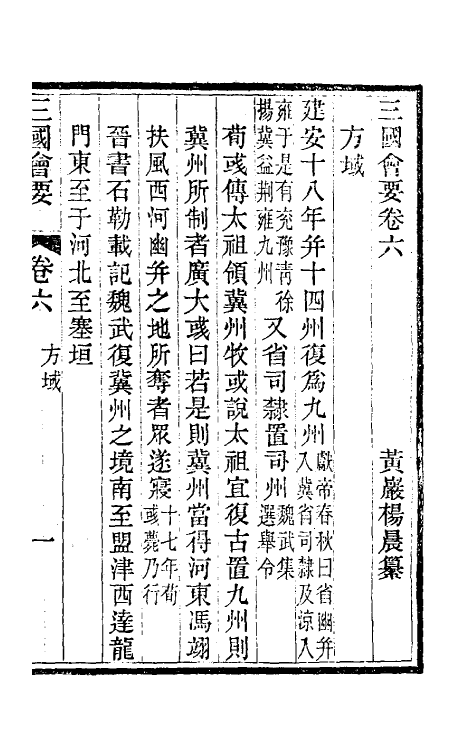 三國會要卷六
黃巖楊晨纂
方域
建安十八年幷十四州復爲九州獻帝春秋曰省幽幷入冀省司隸及涼入
雍于是有兗豫靑徐揚冀益荆雍九州又省司隸置司州魏武集選舉令
荀彧傳太祖領冀州牧或說太祖宜復古置九州則
冀州所制者廣大彧曰若是則冀州當得河東馮翊
扶風西河幽幷之地所奪者眾遂寢十七年荀彧薨乃行
晉書石勒載記魏武復冀州之境南至盟津西達龍
門東至于河北至塞垣
三國會要 卷六 方域 一